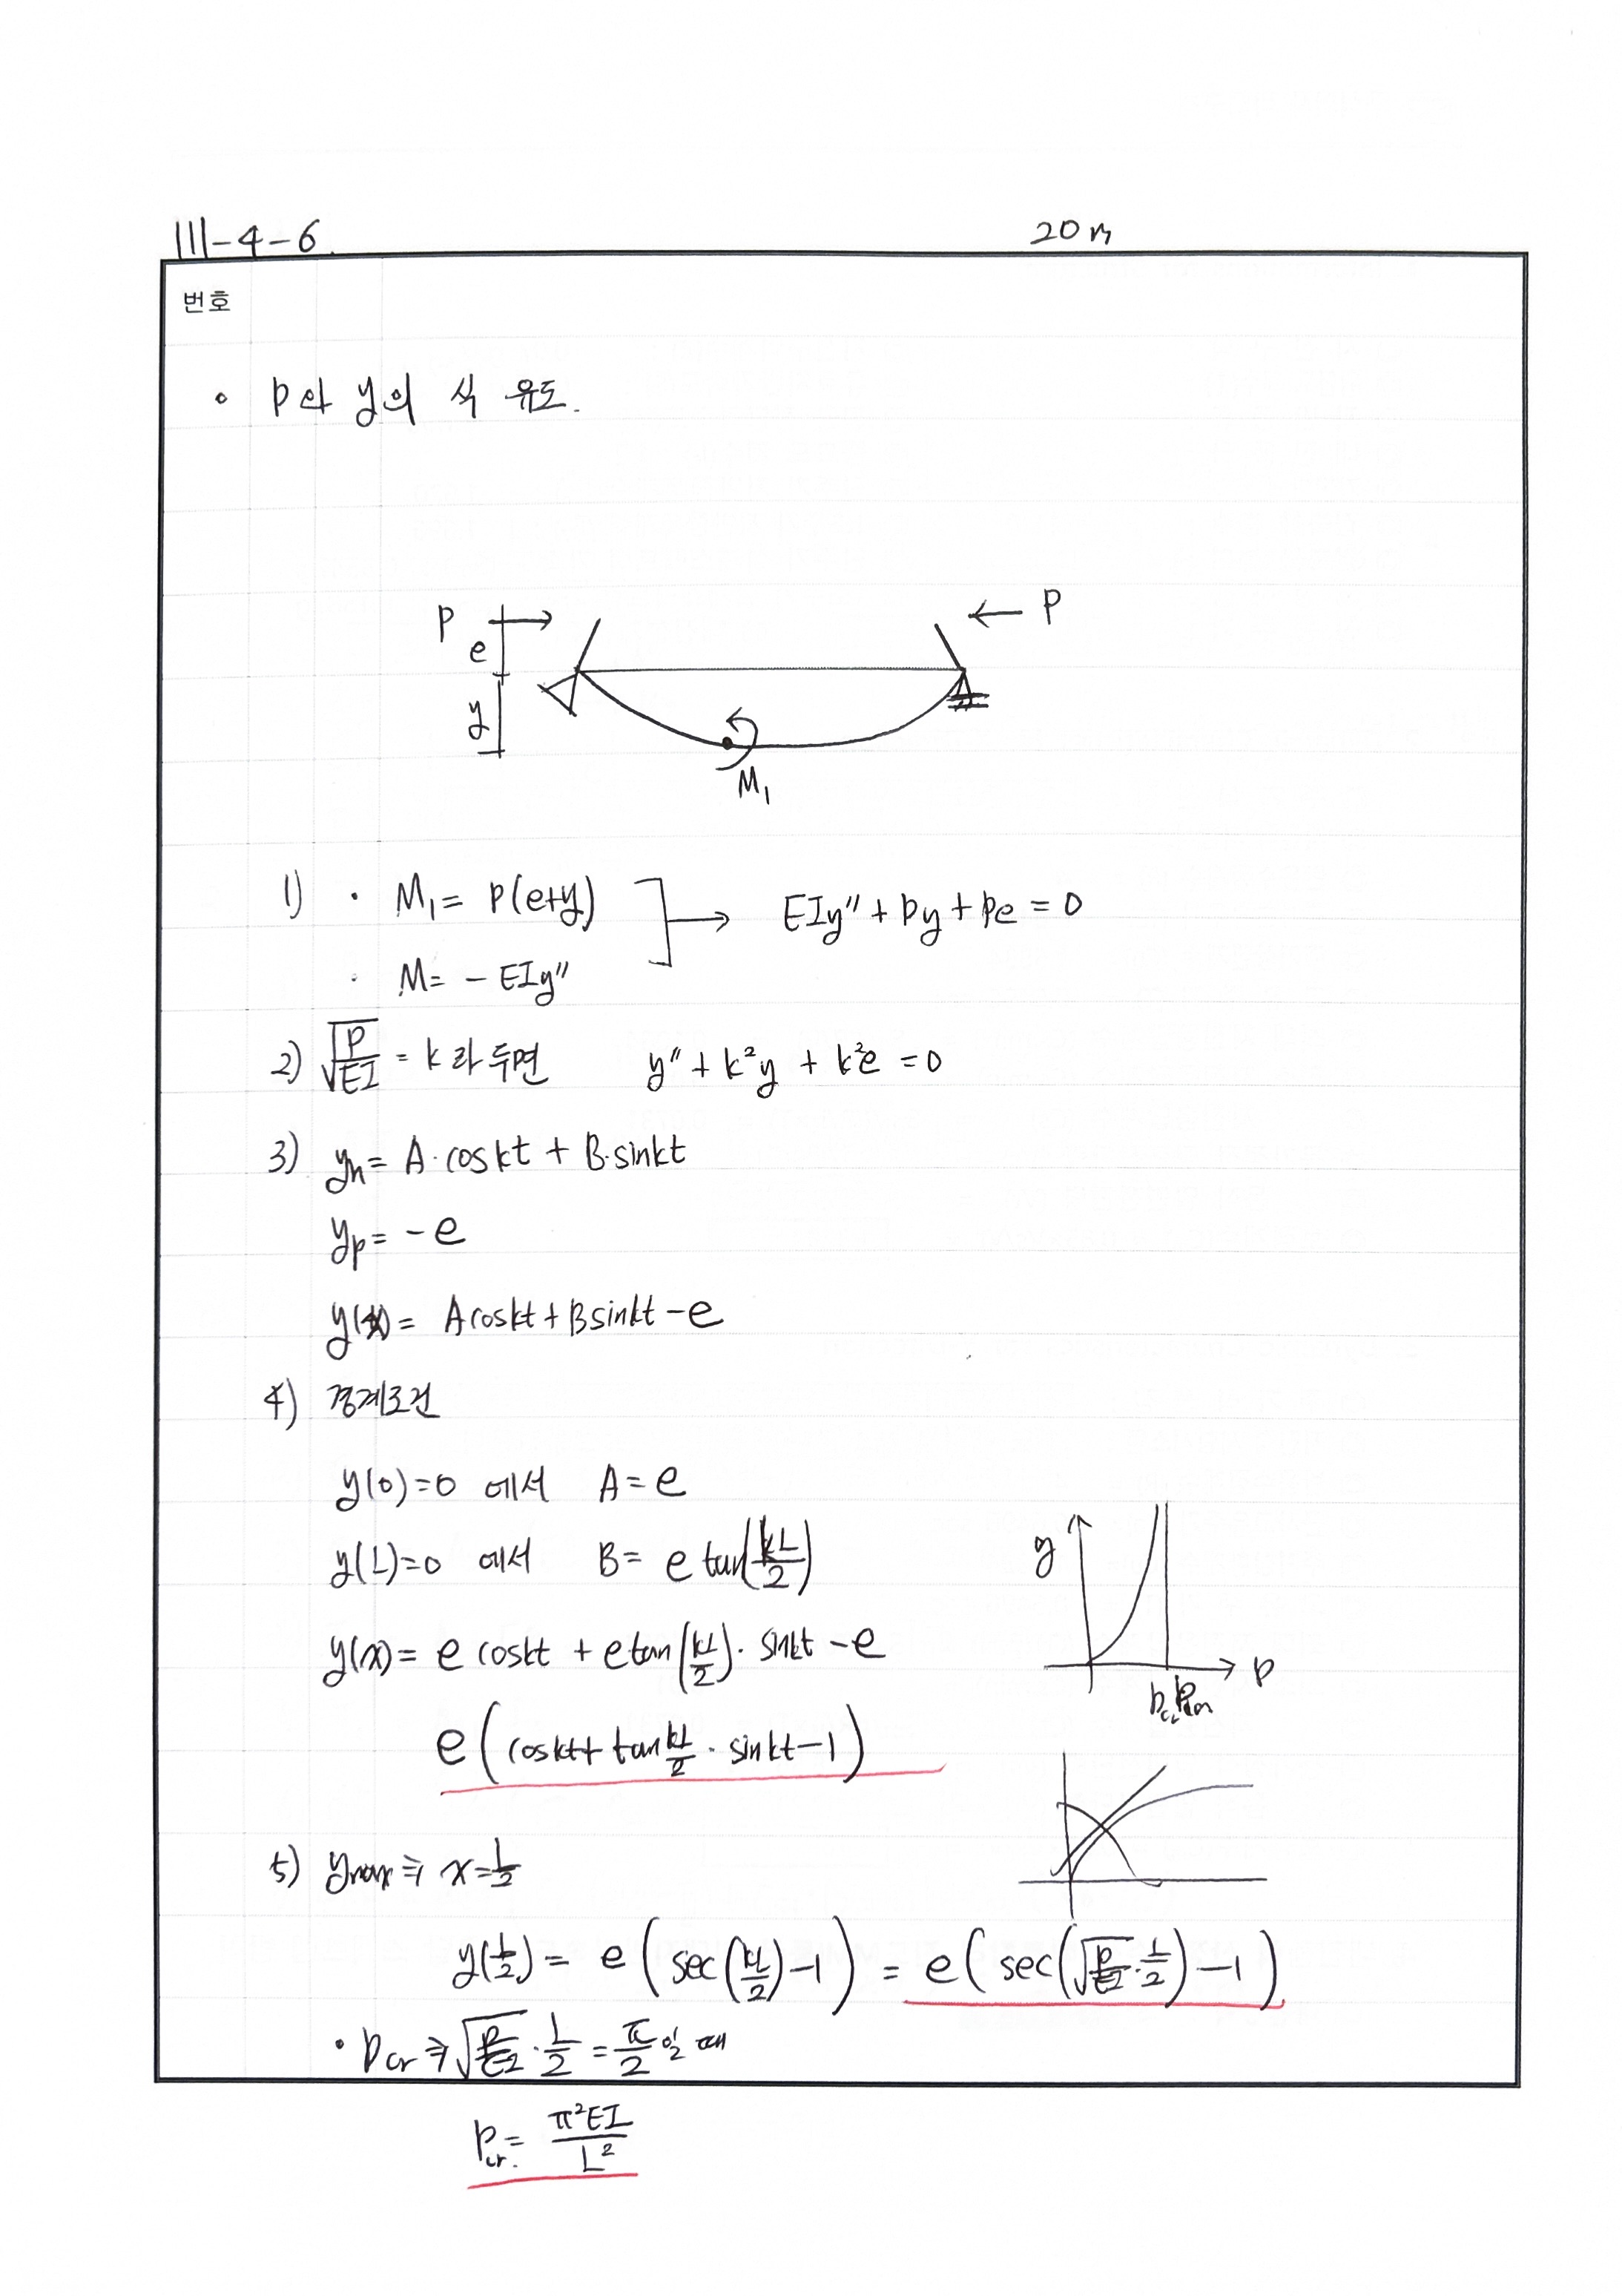 111-4-6.
20m
번호
• P와 y의 식 유도.
P
e
y
P
M₁
1) • M₁ = P(e+y)
• M = - EIy″
→ EIy″ + Py + Pe = 0
2) √(P/EI) = k 라 두면 y″ + k²y + k²e = 0
3) yₕ = A·coskt + B·sinkt
yₚ = -e
y(x) = Acoskt + Bsinkt - e
4) 경계조건
y(0)=0 에서 A = e
y(L)=0 에서 B = e tan(kL/2)
y(x) = e coskt + e tan(kL/2)· sinkt - e
e(coskt + tan kL/2 · sinkt - 1)
y
P
Pcr
5) ymax ⇒ x = L/2
y(L/2) = e(sec(kL/2) - 1) = e(sec(√(P/EI)·L/2) - 1)
• Pcr ⇒ √(P/EI)·L/2 = π/2 일 때
Pcr. = π²EI/L²